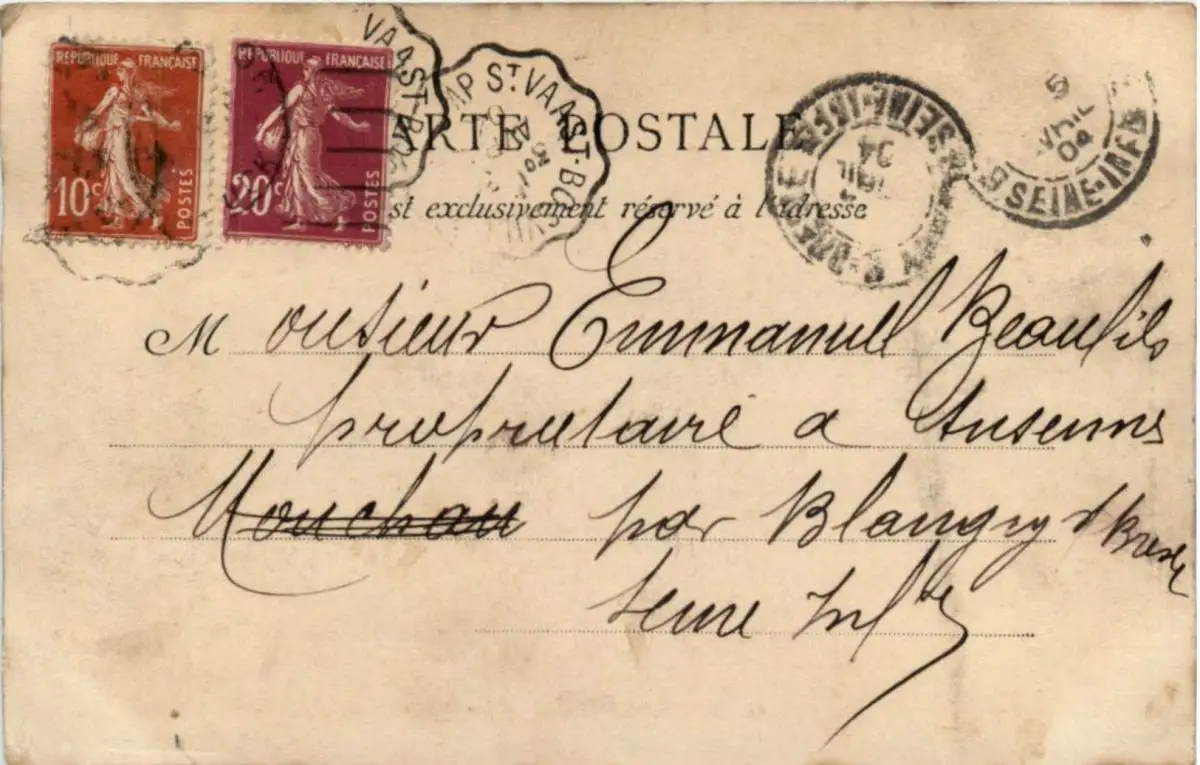 REPUBLIQUE FRANÇAISE
10c POSTES
REPUBLIQUE FRANÇAISE
20c POSTES
VAAST-BO
MP ST VAAST-BO
SEINE-INFRE
04
5
AVRIL
04
SEINE-INFRE
CARTE POSTALE
est exclusivement réservé à l'adresse
Monsieur Emmanuel Beaufils
propriétaire a
Mouchau par Blangy s/ Bresle
Seine Infre